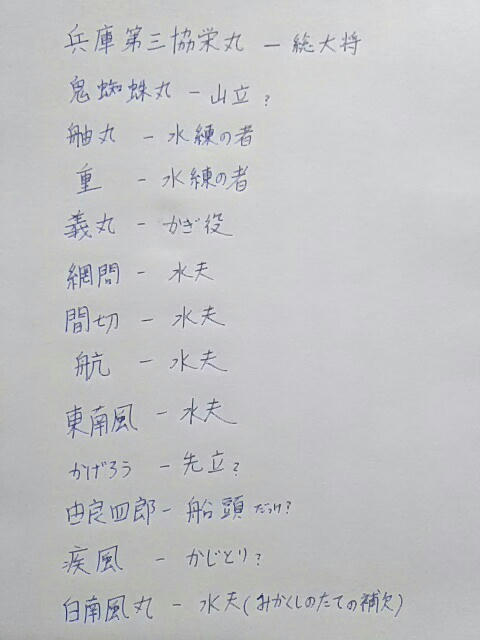 兵庫第三協栄丸 － 総大将
鬼蜘蛛丸 － 山立?
舳丸 － 水練の者
重 － 水練の者
義丸 － かぎ役
網問 － 水夫
間切 － 水夫
航 － 水夫
東南風 － 水夫
かげろう － 先立?
由良四郎 － 船頭だっけ?
疾風 － かじとり?
白南風丸 － 水夫(みかくしのたての補欠)